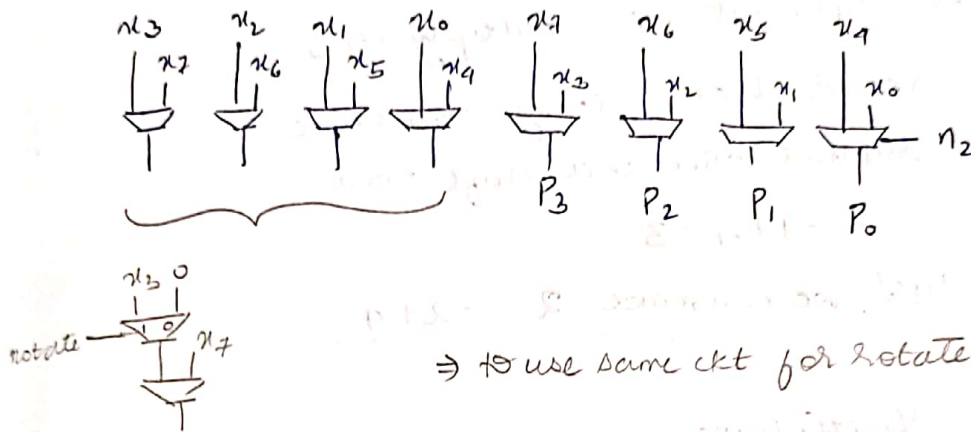 x3 x2 x1 x0 x7 x6 x5 x4
x7 x6 x5 x4 x3 x2 x1 x0
n2
P3 P2 P1 P0
x3 0
rotate 1 0
x7
⇒ to use same ckt for rotate